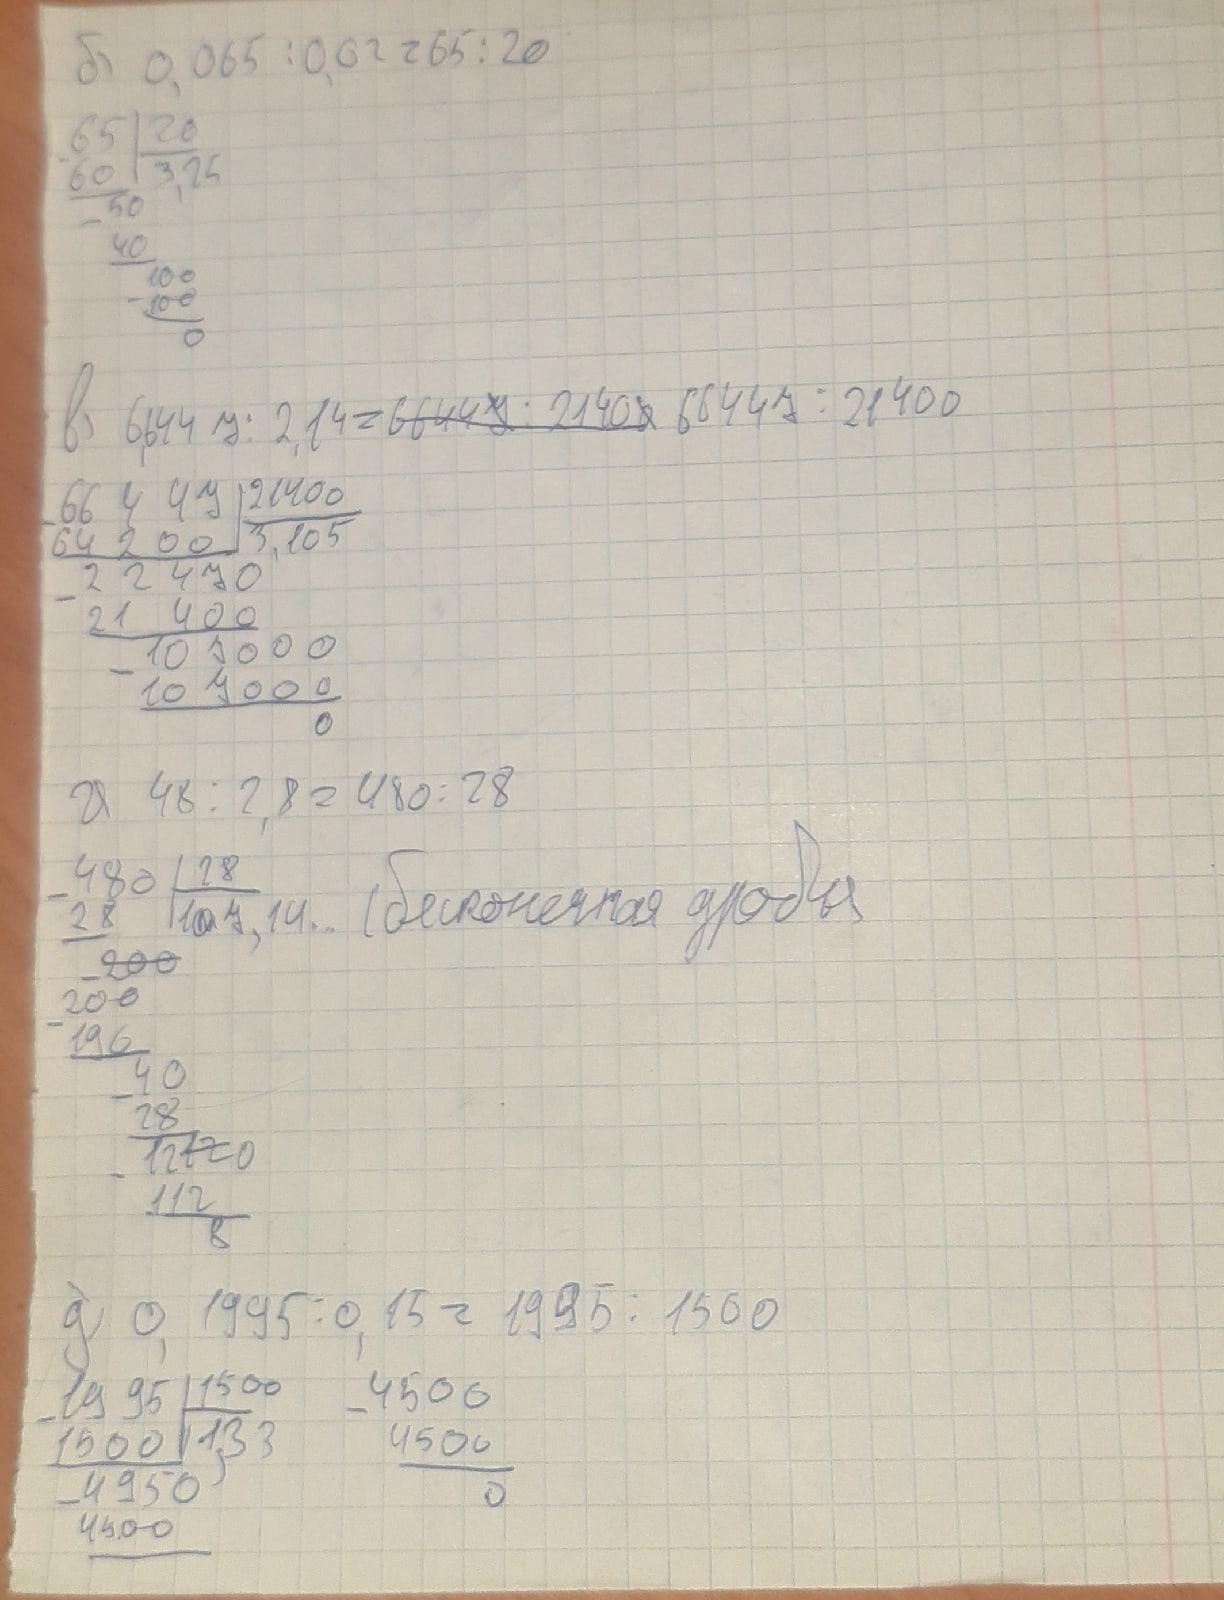 б) 0,065 : 0,02 = 65 : 20
65 | 20
60 | 3,25
- 50
40
100
- 100
0
в) 6,6447 : 2,14 = 66447 : 21400
- 66447 | 21400
64200 | 3,105
- 22470
21400
- 107000
107000
0
г) 48 : 2,8 = 480 : 28
- 480 | 28
28 | 17,14... (бесконечная дробь)
- 200
200
- 196
- 40
28
- 120
112
8
д) 0,1995 : 0,15 = 1995 : 1500
- 1995 | 1500
1500 | 1,33
- 4950
4500
- 4500
4500
0